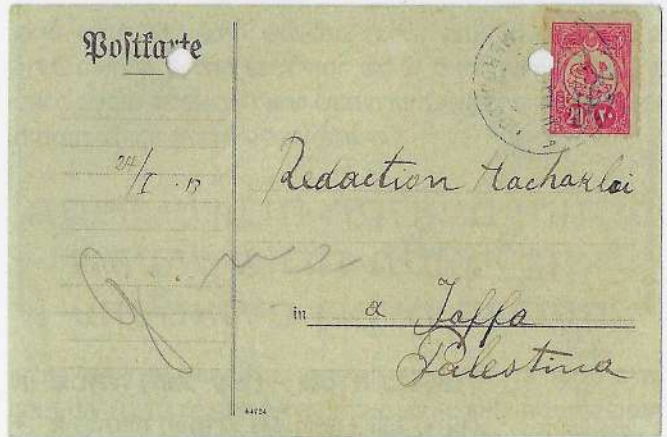 Postkarte
24/I · 13
Redaction Hachaklai
in a Jaffa
Palestina
44724
20 ٢٠